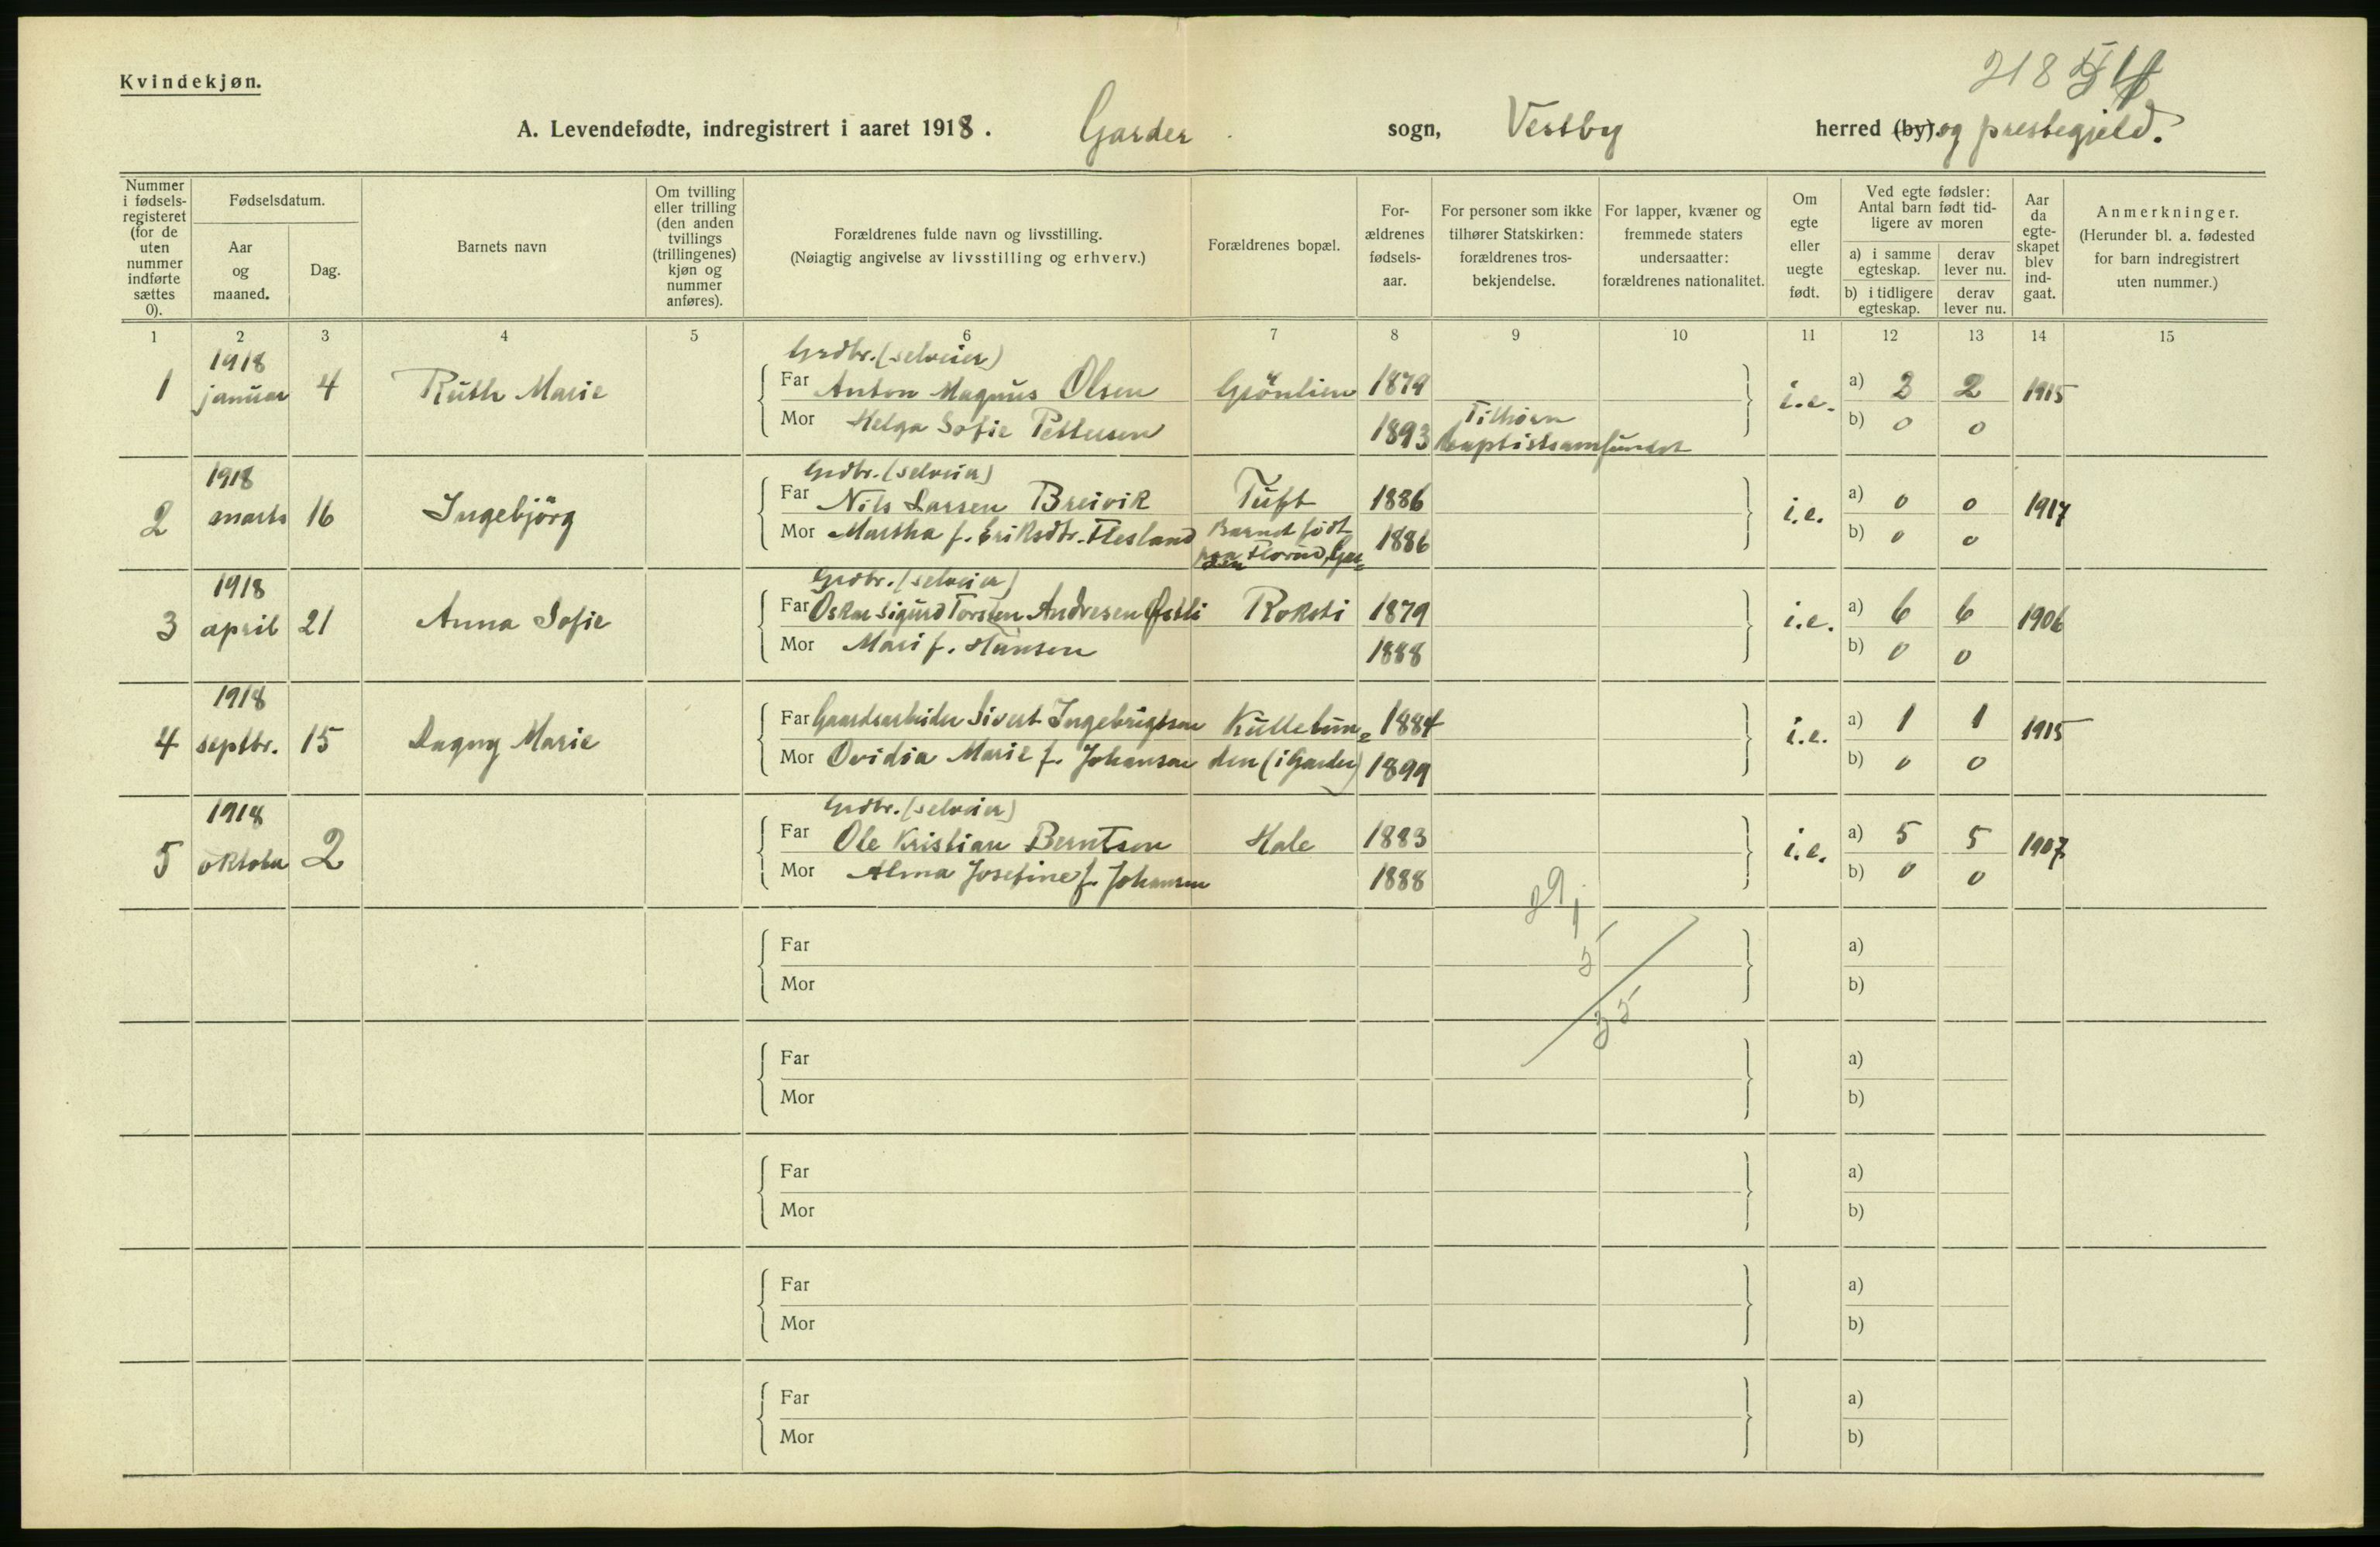 218
Kvindekjøn.
A. Levendefødte, indregistrert i aaret 1918. Garder sogn, Vestby herred (by). og prestegjeld.
Nummer i fødsels- registeret (for de uten nummer indførte sættes 0).
Fødselsdatum.
Aar og maaned.
Dag.
Barnets navn
Om tvilling eller trilling (den anden tvillings (trillingenes) kjøn og nummer anføres).
Forældrenes fulde navn og livsstilling.
(Nøiagtig angivelse av livsstilling og erhverv.)
Forældrenes bopæl.
For- ældrenes fødsels- aar.
For personer som ikke tilhører Statskirken: forældrenes tros- bekjendelse.
For lapper, kvæner og fremmede staters undersaatter: forældrenes nationalitet.
Om egte eller uegte født.
Ved egte fødsler: Antal barn født tid- ligere av moren
a) i samme egteskap.
derav lever nu.
b) i tidligere egteskap.
derav lever nu.
Aar da egte- skapet blev ind- gaat.
Anmerkninger.
(Herunder bl. a. fødested for barn indregistrert uten nummer.)
1 2 3 4 5 6 7 8 9 10 11 12 13 14 15
1918 Grdbr. (selveier)
1 januar 4 Ruth Marie Far Anton Magnus Olsen Grönlien 1879 i.e. a) 2 2 1915
Mor Helga Sofie Pettersen 1893 Tilhører baptistsamfundet b) 0 0
1918 Grdbr. (selveier)
2 marts 16 Ingebjörg Far Nils Larsen Breivik Tuft 1886 i.e. a) 0 0 1917
Mor Martha f. Eriksdtr. Flesland Barnet født paa 1886 b) 0 0
1918 Grdbr. (selveier)
3 april 21 Anna Sofie Far Oskar Sigurd Torsten Andresen Østli Roksti 1879 i.e. a) 6 6 1906
Mor Mari f. Hansen 1888 b) 0 0
1918
4 septbr. 15 Dagny Marie Far Gaardsarbeider Sivert Ingebrigtsen Kullebun= 1884 i.e. a) 1 1 1915
Mor Ovidia Marie f. Johansen den (i Garder) 1899 b) 0 0
1918 Grdbr. (selveier)
5 oktober 2 Far Ole Kristian Berntsen Hale 1883 i.e. a) 5 5 1907
Mor Alma Josefine f. Johansen 1888 b) 0 0
29,
5
35
Far a)
Mor b)
Far a)
Mor b)
Far a)
Mor b)
Far a)
Mor b)
Far a)
Mor b)